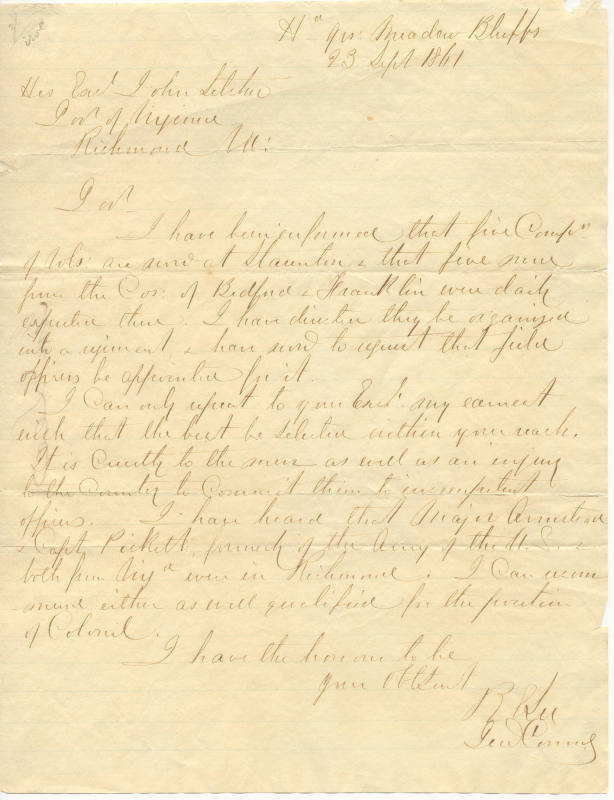 Hd qrs: Meadow Bluffs
23 Sept 1861
His Excl John Letcher
Govr of Virginia
Richmond Va:
Govr
I have been informed that five Compns
of Vols: are now at Staunton & that five more
from the Cos: of Bedford & Franklin were daily
expected there. I have directed they be organized
into a regiment & have now to request that field
officers be appointed for it.
I can only repeat to your Excl my earnest
wish that the best be selected within your reach.
It is cruelty to the men as well as an injury
to the Country to commit them to incompetent
officers. I have heard that Major Armistead
& Capt Pickett, formerly of the Army of the U. S. &
both from Virga were in Richmond. I can recom
mend either as well qualified for the position
of Colonel.
I have the honour to be
your Obt Servt
R E Lee
Genl Commg